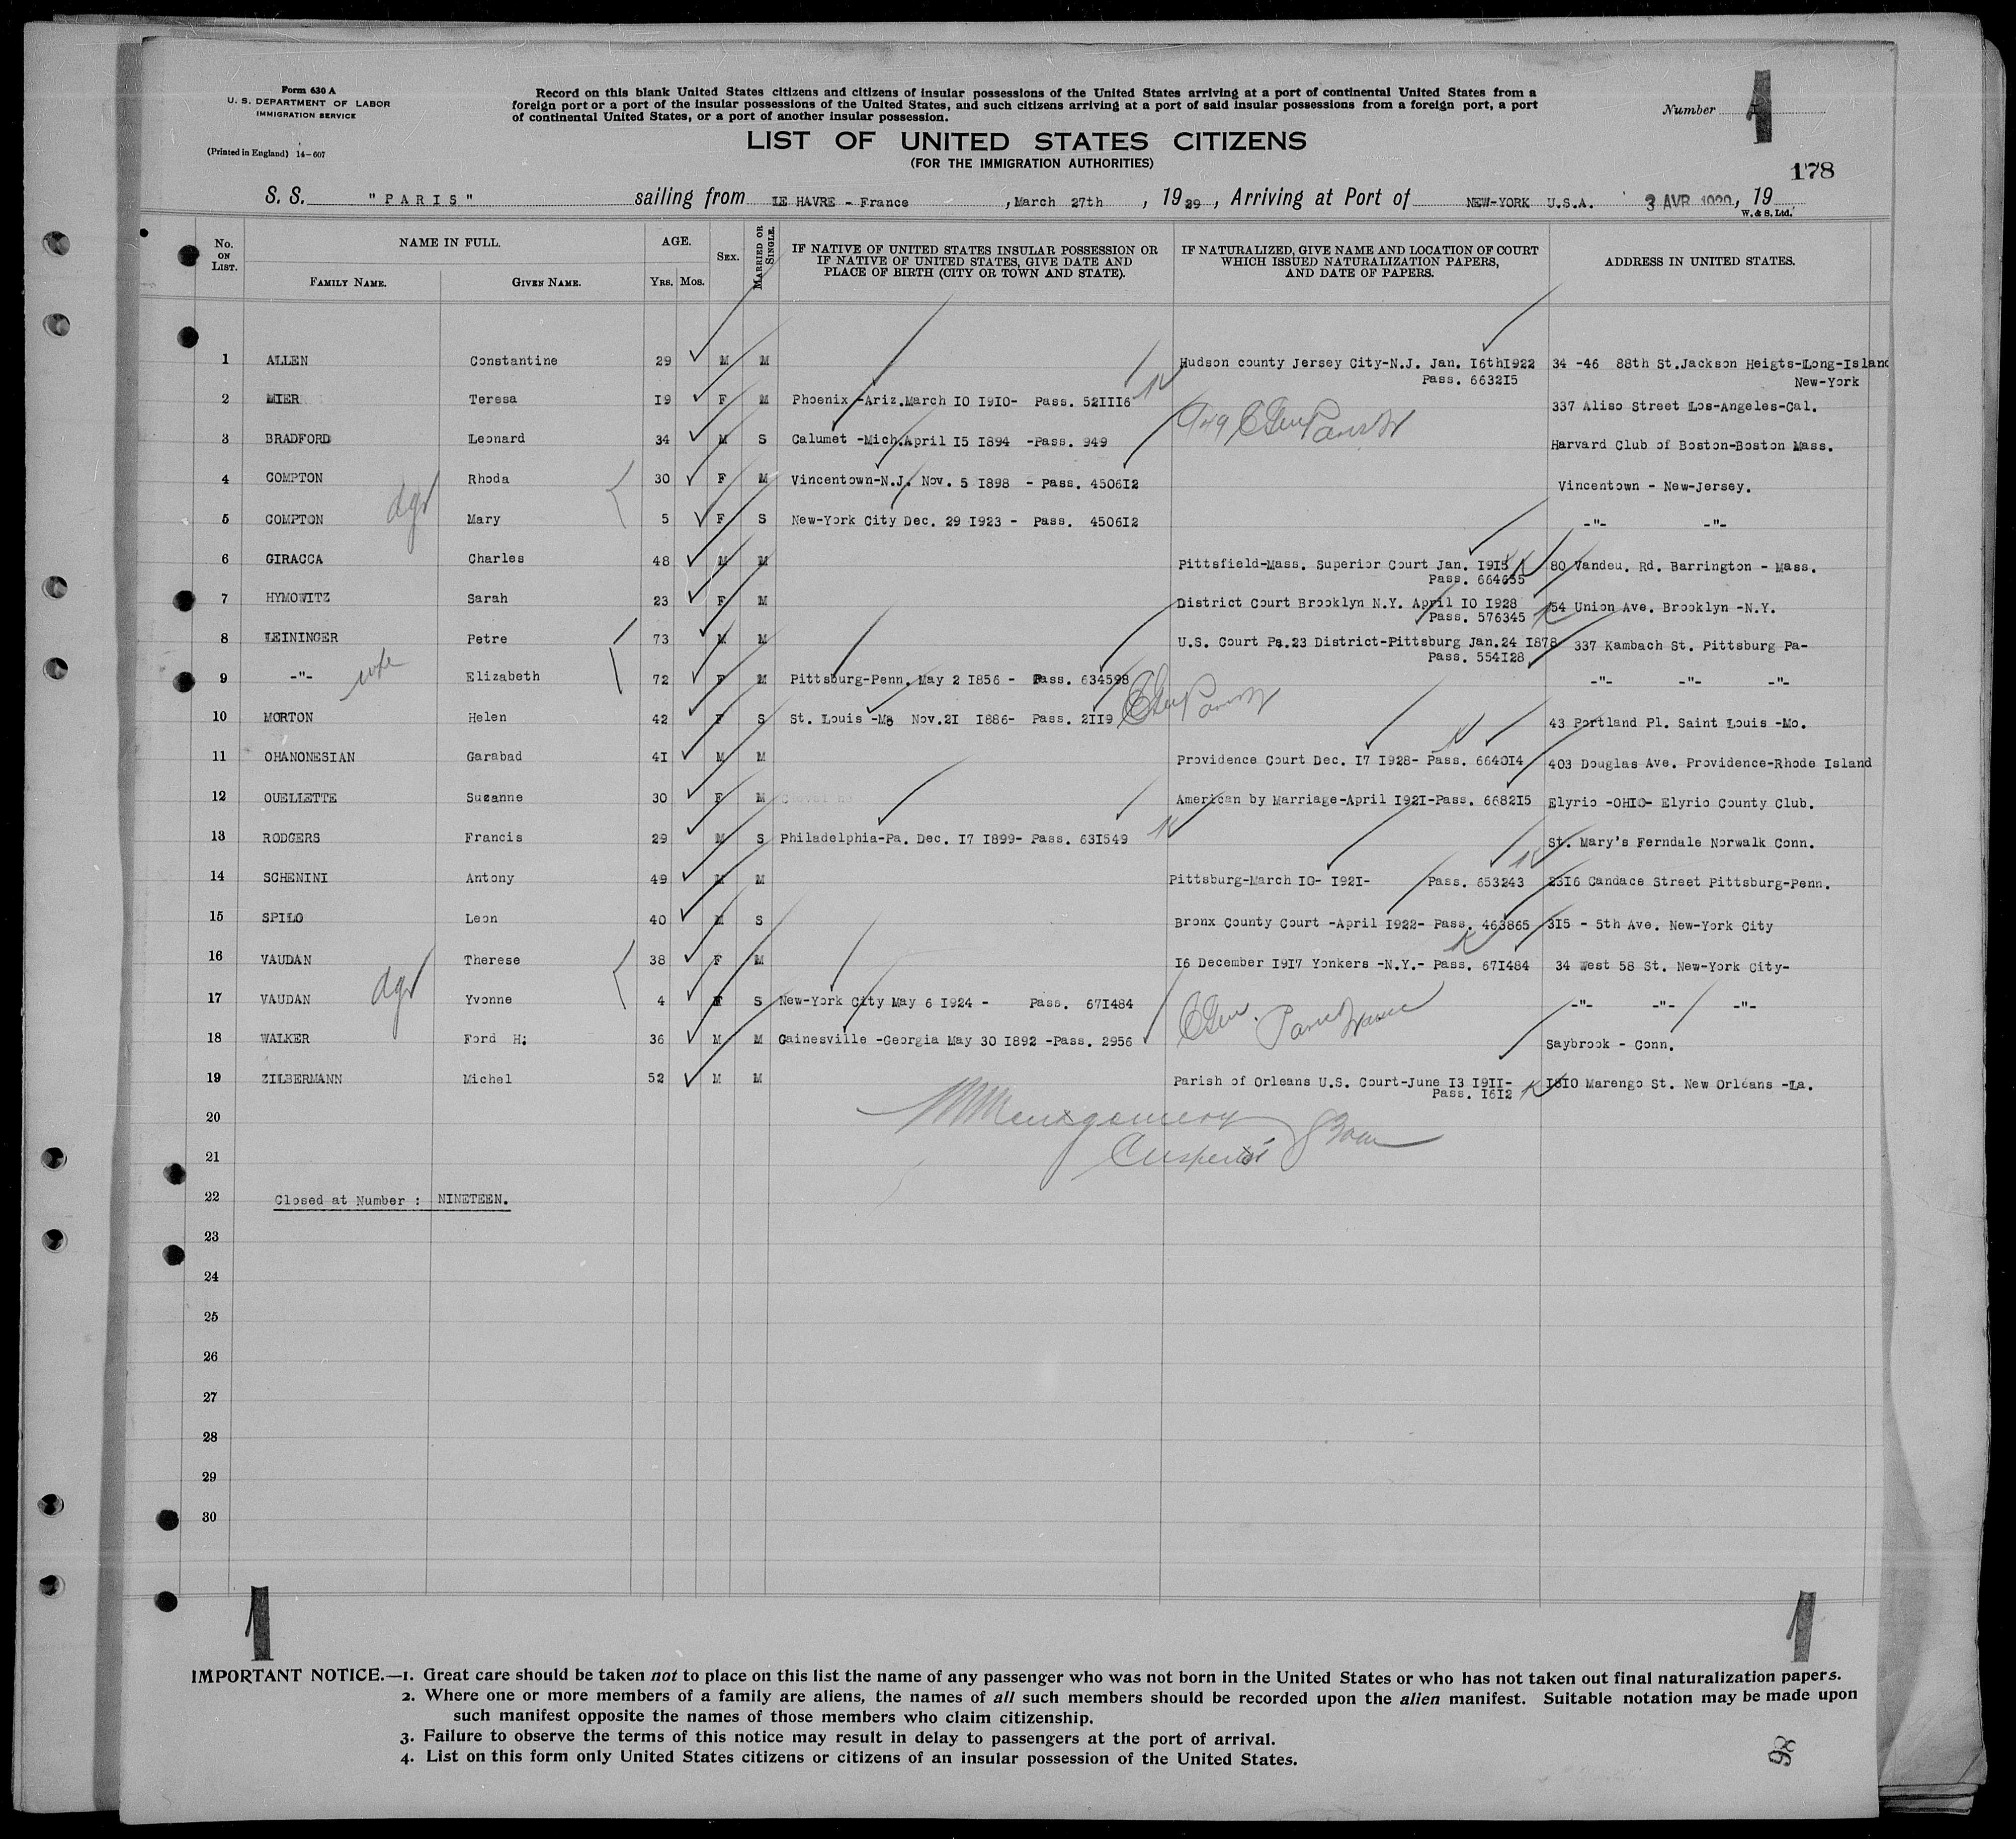 Form 630 A
U. S. DEPARTMENT OF LABOR
IMMIGRATION SERVICE
(Printed in England) 14-607
Record on this blank United States citizens and citizens of insular possessions of the United States arriving at a port of continental United States from a
foreign port or a port of the insular possessions of the United States, and such citizens arriving at a port of said insular possessions from a foreign port, a port
of continental United States, or a port of another insular possession.
Number 1
LIST OF UNITED STATES CITIZENS
(FOR THE IMMIGRATION AUTHORITIES)
178
S. S. "PARIS" sailing from LE HAVRE - France , March 27th , 1929, Arriving at Port of NEW-YORK U.S.A. 3 AVR , 19
W. & S. Ltd.
No. ON LIST. NAME IN FULL. FAMILY NAME. GIVEN NAME. AGE. YRS. MOS. SEX. MARRIED OR SINGLE. IF NATIVE OF UNITED STATES INSULAR POSSESSION OR IF NATIVE OF UNITED STATES, GIVE DATE AND PLACE OF BIRTH (CITY OR TOWN AND STATE). IF NATURALIZED, GIVE NAME AND LOCATION OF COURT WHICH ISSUED NATURALIZATION PAPERS, AND DATE OF PAPERS. ADDRESS IN UNITED STATES.
1 ALLEN Constantine 29 M M Hudson county Jersey City-N.J. Jan. I6thI922 34 -46 88th St.Jackson Heigts-Long-Island
Pass. 6632I5 New-York
2 MIER Teresa I9 F M Phoenix -Ariz.March IO I9IO- Pass. 52III6 337 Aliso Street Los-Angeles-Cal.
3 BRADFORD Leonard 34 M S Calumet -Mich.April I5 I894 -Pass. 949 Harvard Club of Boston-Boston Mass.
4 COMPTON Rhoda 30 F M Vincentown-N.J. Nov. 5 I898 - Pass. 4506I2 Vincentown - New-Jersey.
5 COMPTON dgr Mary 5 F S New-York City Dec. 29 I923 - Pass. 4506I2 -"- -"-
6 GIRACCA Charles 48 M M Pittsfield-Mass. Superior Court Jan. I9I5 80 Vandeu. Rd. Barrington - Mass.
Pass. 664655
7 HYMOWITZ Sarah 23 F M District Court Brooklyn N.Y. April IO I928 54 Union Ave. Brooklyn -N.Y.
Pass. 576345
8 LEININGER Petre 73 M M U.S. Court Pa.23 District-Pittsburg Jan.24 I878 337 Kambach St. Pittsburg Pa-
Pass. 554I28
9 -"- wife Elizabeth 72 F M Pittsburg-Penn. May 2 I856 - Pass. 634598 -"- -"- -"-
10 MORTON Helen 42 F S St. Louis -Mo Nov.2I I886- Pass. 2II9 43 Portland Pl. Saint Louis -Mo.
11 OHANONESIAN Garabad 4I M M Providence Court Dec. I7 I928- Pass. 664OI4 403 Douglas Ave. Providence-Rhode Island
12 OUELLETTE Suzanne 30 F M American by Marriage-April I92I-Pass. 6682I5 Elyrio -OHIO- Elyrio County Club.
13 RODGERS Francis 29 M S Philadelphia-Pa. Dec. I7 I899- Pass. 63I549 St. Mary's Ferndale Norwalk Conn.
14 SCHENINI Antony 49 M M Pittsburg-March IO- I92I- Pass. 653243 23I6 Candace Street Pittsburg-Penn.
15 SPILO Leon 40 M S Bronx County Court -April I922- Pass. 463865 3I5 - 5th Ave. New-York City
16 VAUDAN Therese 38 F M I6 December I9I7 Yonkers -N.Y.- Pass. 67I484 34 West 58 St. New-York City-
17 VAUDAN dgr Yvonne 4 F S New-York City May 6 I924 - Pass. 67I484 -"- -"- -"-
18 WALKER Ford H: 36 M M Gainesville -Georgia May 30 I892 -Pass. 2956 Saybrook - Conn.
19 ZILBERMANN Michel 52 M M Parish of Orleans U.S. Court-June I3 I9II- I8IO Marengo St. New Orléans -La.
Pass. I6I2
20 Montgomery
21 Inspector
22 Closed at Number : NINETEEN.
23
24
25
26
27
28
29
30
1 1
IMPORTANT NOTICE.—1. Great care should be taken not to place on this list the name of any passenger who was not born in the United States or who has not taken out final naturalization papers.
2. Where one or more members of a family are aliens, the names of all such members should be recorded upon the alien manifest. Suitable notation may be made upon
such manifest opposite the names of those members who claim citizenship.
3. Failure to observe the terms of this notice may result in delay to passengers at the port of arrival.
4. List on this form only United States citizens or citizens of an insular possession of the United States.
98